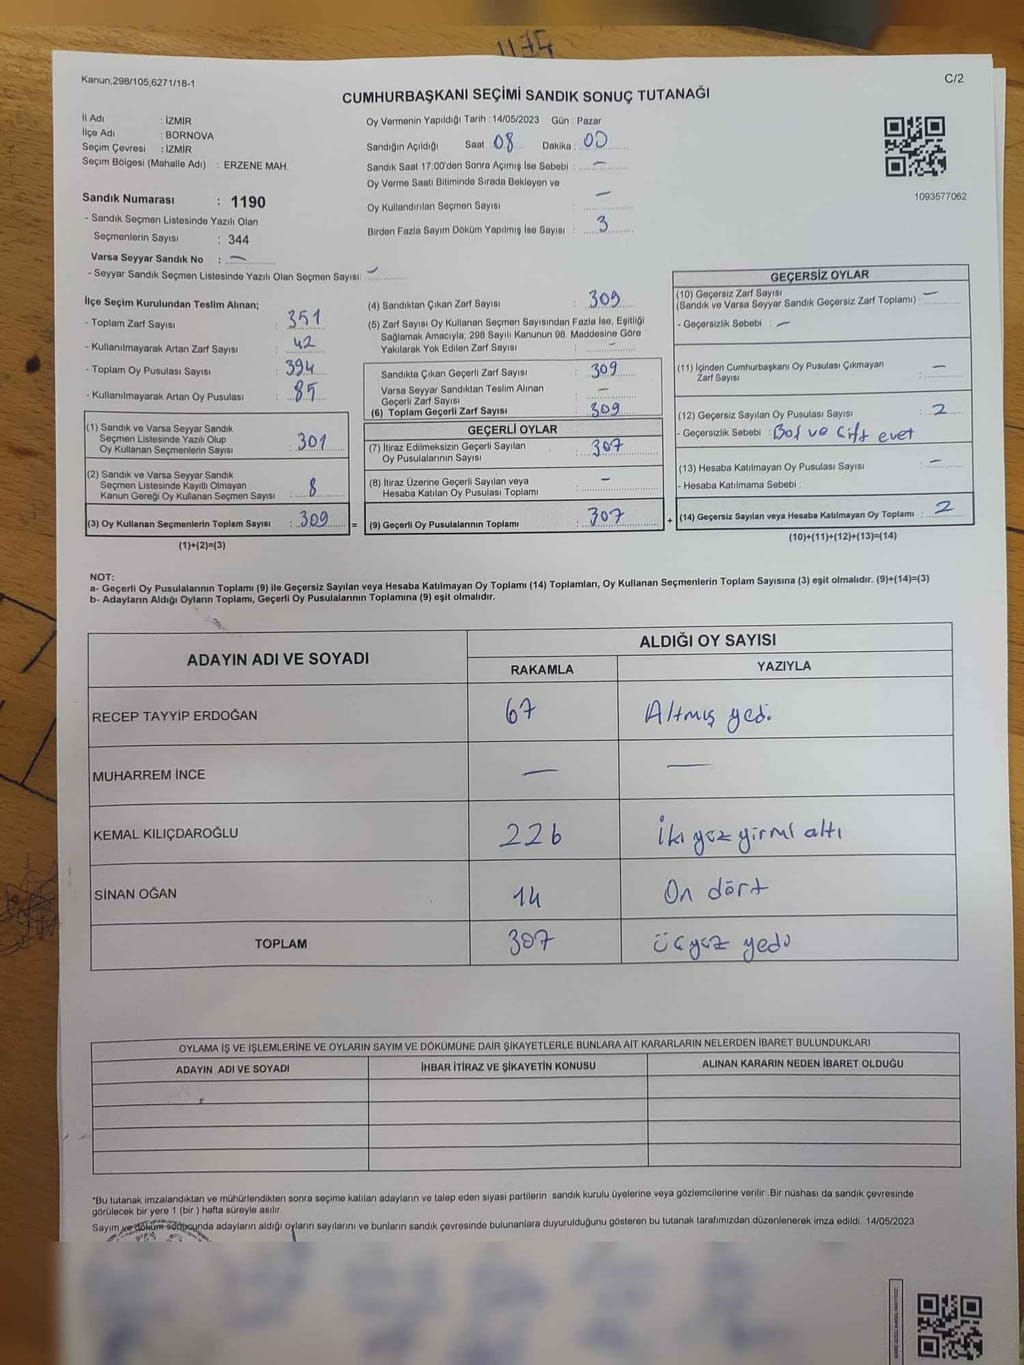 1174
Kanun,298/105,6271/18-1
C/2
CUMHURBAŞKANI SEÇİMİ SANDIK SONUÇ TUTANAĞI
İl Adı : İZMİR
İlçe Adı : BORNOVA
Seçim Çevresi : İZMİR
Seçim Bölgesi (Mahalle Adı) : ERZENE MAH.
Oy Vermenin Yapıldığı Tarih : 14/05/2023 Gün : Pazar
Sandığın Açıldığı Saat : 08 Dakika : 00
Sandık Saat 17:00'den Sonra Açımış İse Sebebi : —
Oy Verme Saati Bitiminde Sırada Bekleyen ve
Oy Kullandırılan Seçmen Sayısı : —
Birden Fazla Sayım Döküm Yapılmış İse Sayısı : 3
1093577062
Sandık Numarası : 1190
- Sandık Seçmen Listesinde Yazılı Olan
Seçmenlerin Sayısı : 344
Varsa Seyyar Sandık No : —
- Seyyar Sandık Seçmen Listesinde Yazılı Olan Seçmen Sayısı: —
İlçe Seçim Kurulundan Teslim Alınan;
- Toplam Zarf Sayısı : 351
- Kullanılmayarak Artan Zarf Sayısı : 42
- Toplam Oy Pusulası Sayısı : 394
- Kullanılmayarak Artan Oy Pusulası : 85
(1) Sandık ve Varsa Seyyar Sandık
Seçmen Listesinde Yazılı Olup
Oy Kullanan Seçmenlerin Sayısı : 301
(2) Sandık ve Varsa Seyyar Sandık
Seçmen Listesinde Kayıtlı Olmayan
Kanun Gereği Oy Kullanan Seçmen Sayısı : 8
(3) Oy Kullanan Seçmenlerin Toplam Sayısı : 309 =
(1)+(2)=(3)
(4) Sandıktan Çıkan Zarf Sayısı : 309
(5) Zarf Sayısı Oy Kullanan Seçmen Sayısından Fazla İse, Eşitliği
Sağlamak Amacıyla; 298 Sayılı Kanunun 98. Maddesine Göre
Yakılarak Yok Edilen Zarf Sayısı : —
Sandıkta Çıkan Geçerli Zarf Sayısı : 309
Varsa Seyyar Sandıktan Teslim Alınan
Geçerli Zarf Sayısı : —
(6) Toplam Geçerli Zarf Sayısı : 309
GEÇERLİ OYLAR
(7) İtiraz Edilmeksizin Geçerli Sayılan
Oy Pusulalarının Sayısı : 307
(8) İtiraz Üzerine Geçerli Sayılan veya
Hesaba Katılan Oy Pusulası Toplamı : —
(9) Geçerli Oy Pusulalarının Toplamı : 307 +
GEÇERSİZ OYLAR
(10) Geçersiz Zarf Sayısı
(Sandık ve Varsa Seyyar Sandık Geçersiz Zarf Toplamı) : —
- Geçersizlik Sebebi : —
(11) İçinden Cumhurbaşkanı Oy Pusulası Çıkmayan
Zarf Sayısı : —
(12) Geçersiz Sayılan Oy Pusulası Sayısı : 2
- Geçersizlik Sebebi : Boş ve Çift evet
(13) Hesaba Katılmayan Oy Pusulası Sayısı : —
- Hesaba Katılmama Sebebi :
(14) Geçersiz Sayılan veya Hesaba Katılmayan Oy Toplamı : 2
(10)+(11)+(12)+(13)=(14)
NOT:
a- Geçerli Oy Pusulalarının Toplamı (9) ile Geçersiz Sayılan veya Hesaba Katılmayan Oy Toplamı (14) Toplamları, Oy Kullanan Seçmenlerin Toplam Sayısına (3) eşit olmalıdır. (9)+(14)=(3)
b- Adayların Aldığı Oyların Toplamı, Geçerli Oy Pusulalarının Toplamına (9) eşit olmalıdır.
ADAYIN ADI VE SOYADI ALDIĞI OY SAYISI
RAKAMLA YAZIYLA
RECEP TAYYİP ERDOĞAN 67 Altmış yedi
MUHARREM İNCE — —
KEMAL KILIÇDAROĞLU 226 İki yüz yirmi altı
SİNAN OĞAN 14 On dört
TOPLAM 307 üçyüz yedi
OYLAMA İŞ VE İŞLEMLERİNE VE OYLARIN SAYIM VE DÖKÜMÜNE DAİR ŞİKAYETLERLE BUNLARA AİT KARARLARIN NELERDEN İBARET BULUNDUKLARI
ADAYIN ADI VE SOYADI İHBAR İTİRAZ VE ŞİKAYETİN KONUSU ALINAN KARARIN NEDEN İBARET OLDUĞU
"Bu tutanak imzalandıktan ve mühürlendikten sonra seçime katılan adayların ve talep eden siyasi partilerin sandık kurulu üyelerine veya gözlemcilerine verilir .Bir nüshası da sandık çevresinde
görülecek bir yere 1 (bir ) hafta süreyle asılır.
Sayım ve döküm sonucunda adayların aldığı oyların sayılarını ve bunların sandık çevresinde bulunanlara duyurulduğunu gösteren bu tutanak tarafımızdan düzenlenerek imza edildi. 14/05/2023